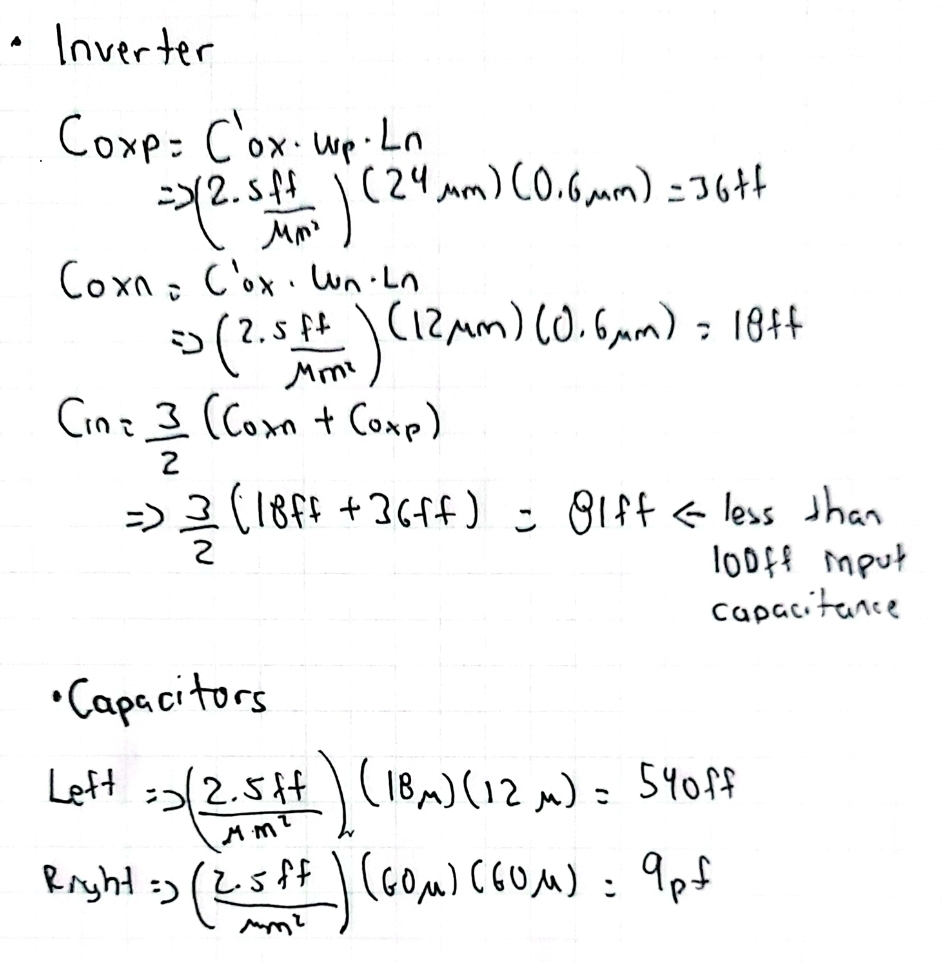 • Inverter
Coxp = C'ox · Wp · Ln
=> (2.5ff/μm²) (24 μm) (0.6 μm) = 36ff
Coxn = C'ox · Wn · Ln
=> (2.5 ff/μm²) (12 μm) (0.6 μm) = 18ff
Cin = 3/2 (Coxn + Coxp)
=> 3/2 (18ff + 36ff) = 81ff ← less than
100ff input
capacitance
• Capacitors
Left => (2.5ff/μm²) (18μ) (12 μ) = 540ff
Right => (2.5 ff/μm²) (60μ) (60μ) = 9pf